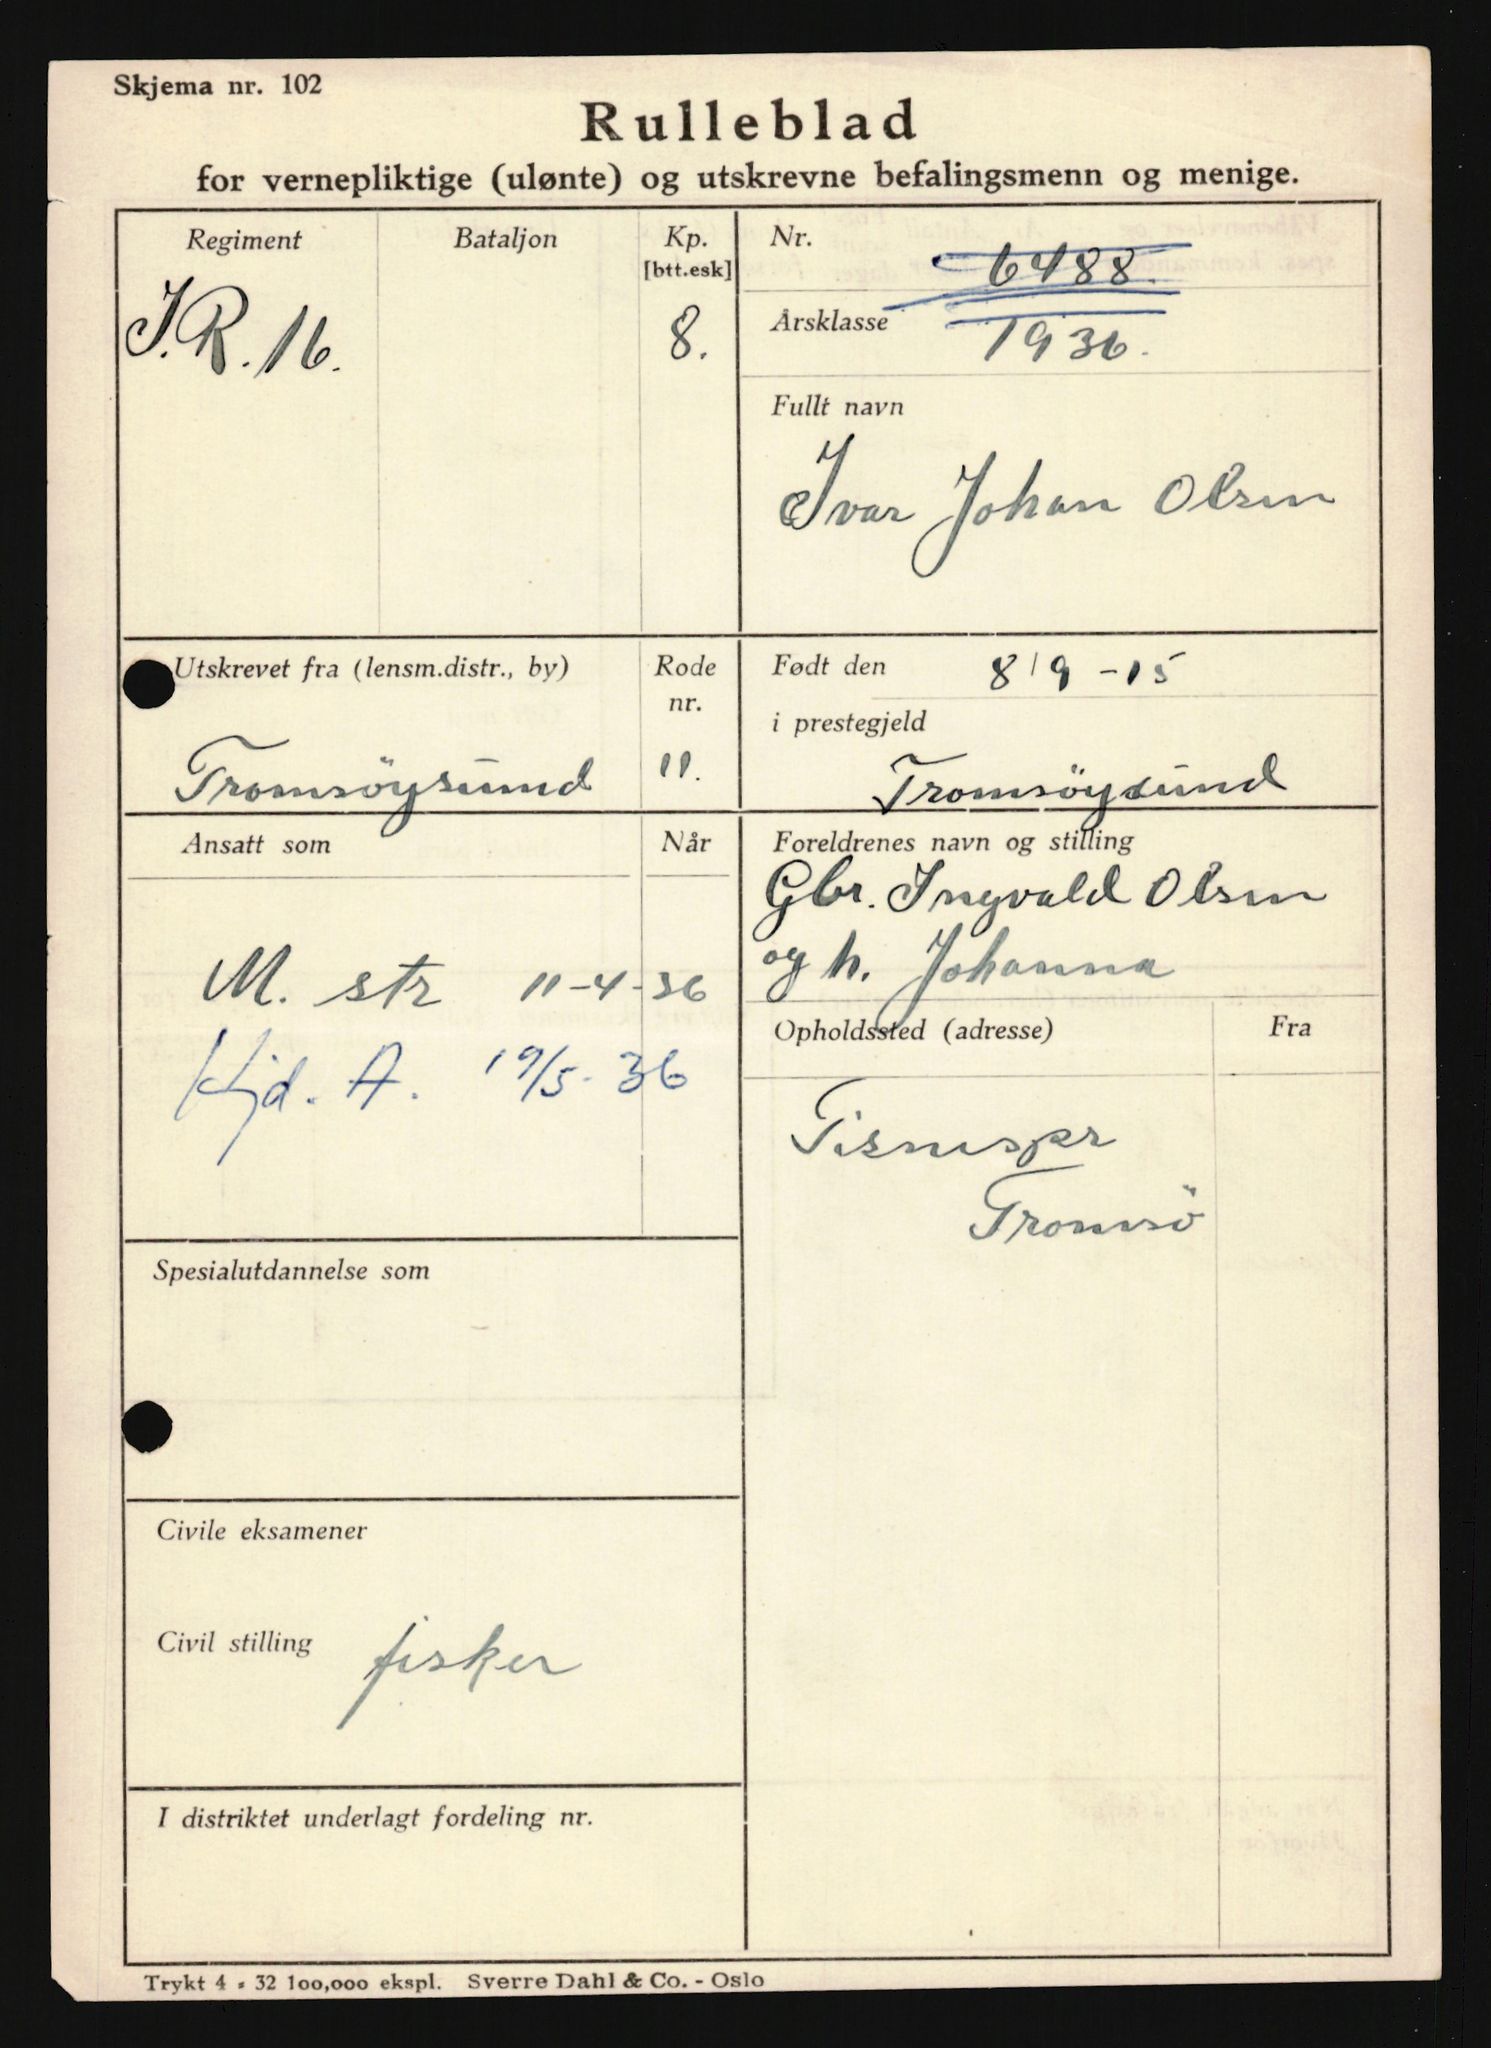 Skjema nr. 102
Rulleblad
for vernepliktige (ulønte) og utskrevne befalingsmenn og menige.
Regiment
Bataljon
Kp.
[btt.esk]
I.R. 16.
8.
Nr.
6488.
Årsklasse
1936.
Fullt navn
Ivar Johan Olsen
Utskrevet fra (lensm.distr., by)
Rode
nr.
Tromsöysund
11.
Født den
8/9 - 15
i prestegjeld
Tromsöysund
Ansatt som
Når
M. str 11-4-36
Kjd. A. 19/5-36
Foreldrenes navn og stilling
Gbr. Ingvald Olsen
og h. Johanna
Opholdssted (adresse)
Fra
Tromsö
Spesialutdannelse som
Civile eksamener
Civil stilling fisker
I distriktet underlagt fordeling nr.
Trykt 4 - 32 100,000 ekspl. Sverre Dahl & Co. - Oslo